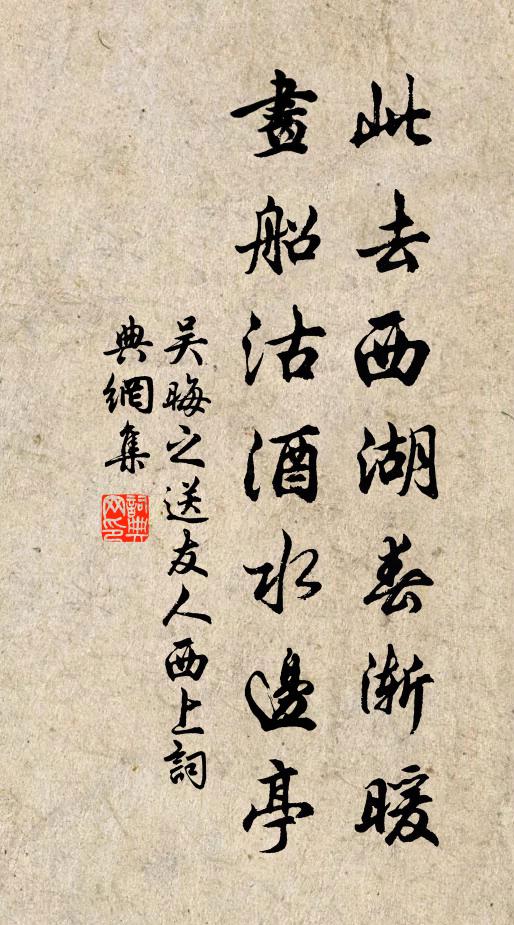 此去西湖春渐暖
畫船沽酒水邊亭
吴晦之送友人西上詞
典網集
詞典网印